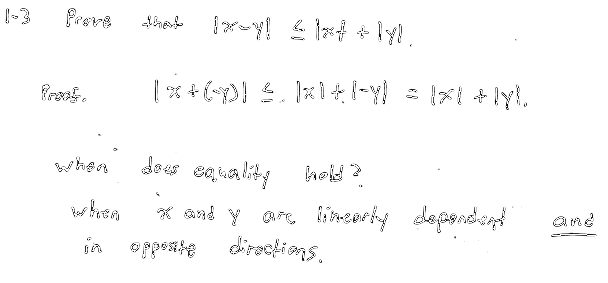 1-3 Prove that |x-y| ≤ |x| + |y|.
Proof. |x+(-y)| ≤ |x| + |-y| = |x| + |y|.
when does equality hold?
when x and y are linearly dependent and
in opposite directions.